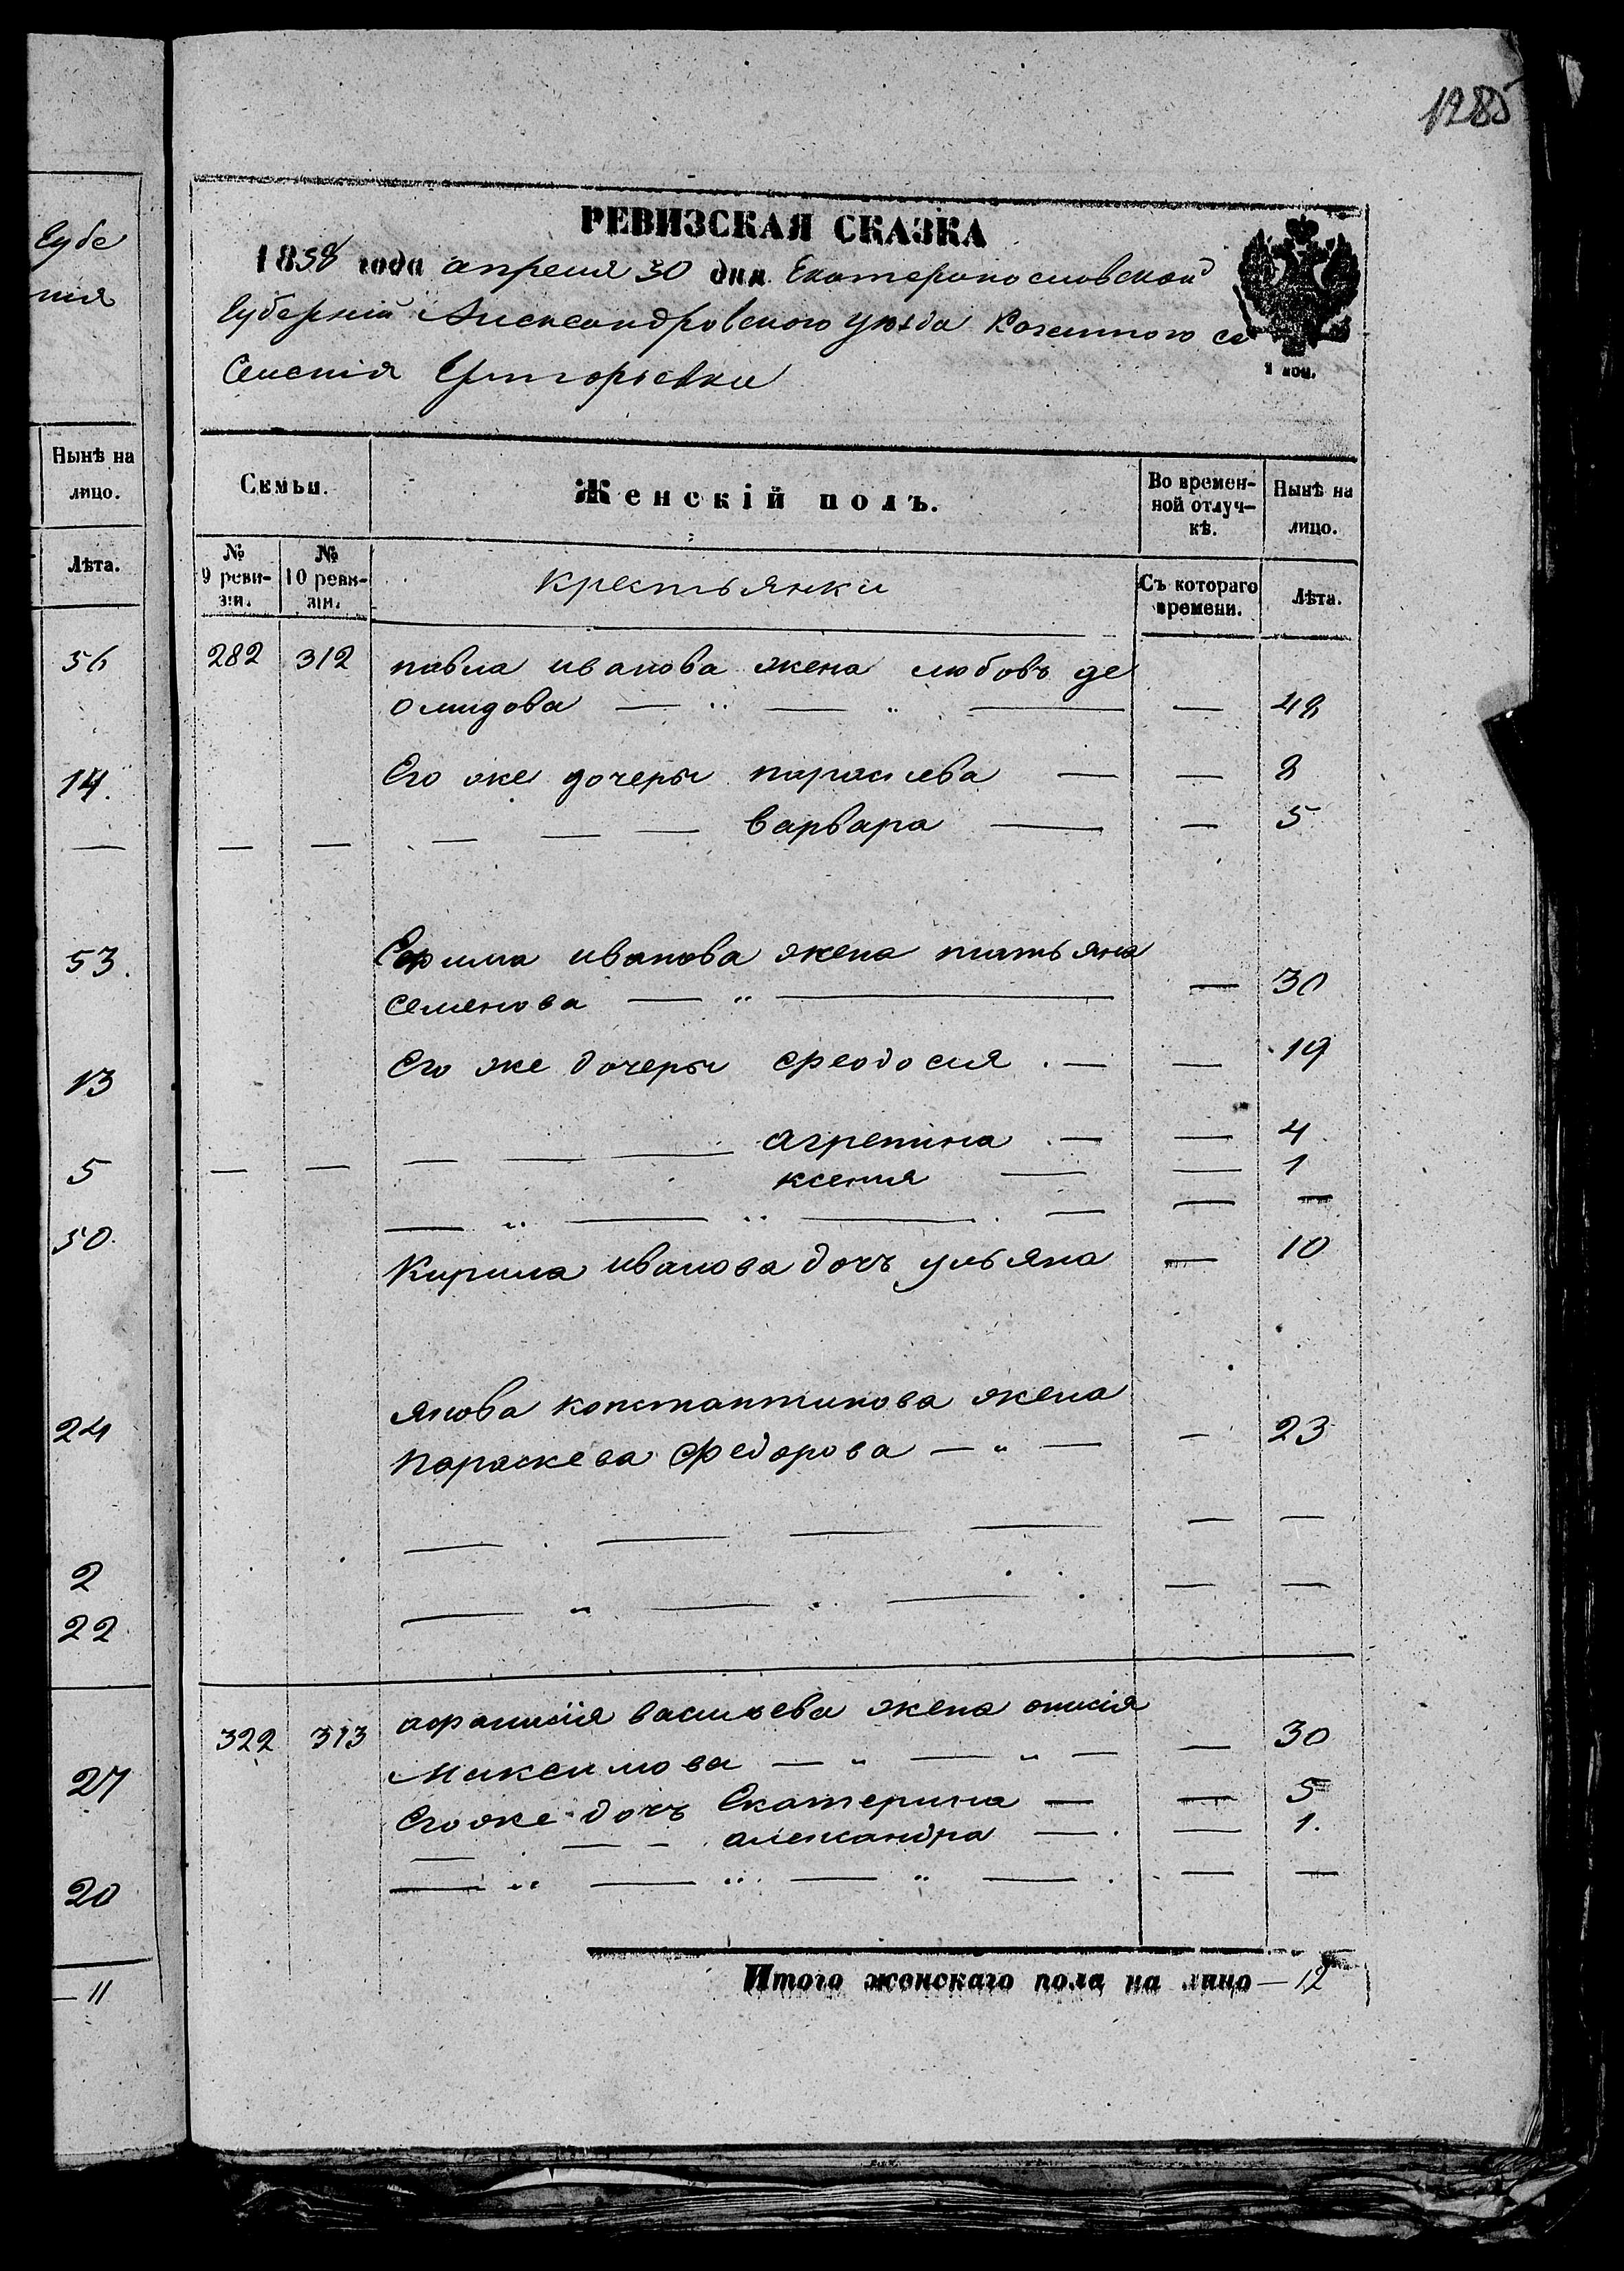 1285
РЕВИЗСКАЯ СКАЗКА
1858 года апреля 30 дня Екатеринославской
Губернии Александровского уезда Казенного се
Селения Григорьевки
1 коп.
Семьи.
Женскій полъ.
Во времен-
ной отлуч-
кѣ.
Нынѣ на
лицо.
№
9 реви-
зіи.
№
10 реви-
зіи.
крестьянки
Съ котораго
времени.
Лѣта.
282 312 павла иванова жена любовъ де
омидова — " — " — — 48
Его же дочеры параскева — — 8
— — — — — варвара — — 5
Ефима иванова жена татьяна
семенова — " — — 30
Его же дочеры феодосия . — — 19
агрепина . — — 4
— — — — — ксения — — 1
— " — " — . — — —
Кирила иванова дочъ ульяна — 10
якова константинова жена
параскева федорова — " — — 23
— . — — — — —
— " — " — . — —
322 313 афанасія васильева жена
максимова — " — " — — 30
Егоже дочъ Екатерина — — 5
— . — — александра — . — 1.
— " — " — " — . — —
Итого женскаго пола на лицо — 12
Губе
ния
Нынѣ на
лицо.
Лѣта.
56
14.
—
53.
13
5
50.
24
2
22
27
20
— 11